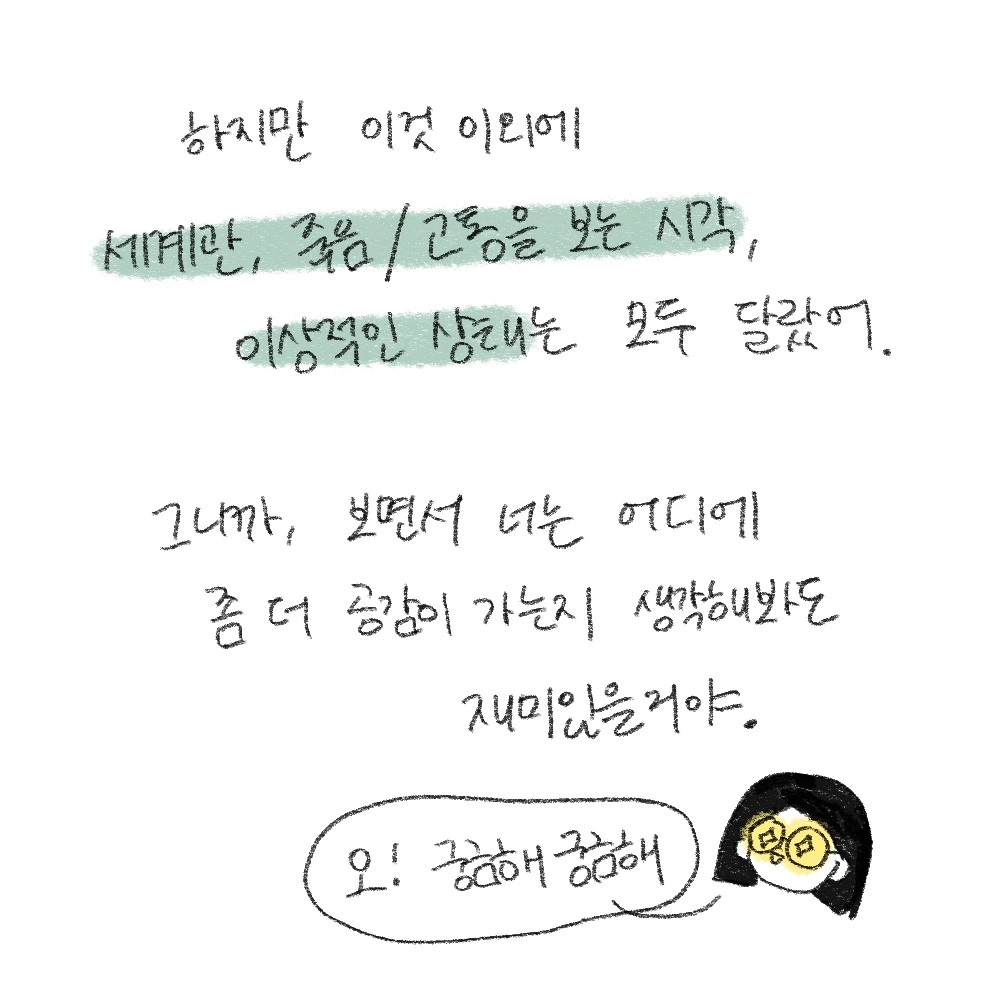 하지만 이것 이외에
세계관, 죽음/고통을 보는 시각,
이상적인 상태는 모두 달랐어.
그니까, 보면서 너는 어디에
좀 더 공감이 가는지 생각해봐도
재미있을거야.
오! 궁금해 궁금해